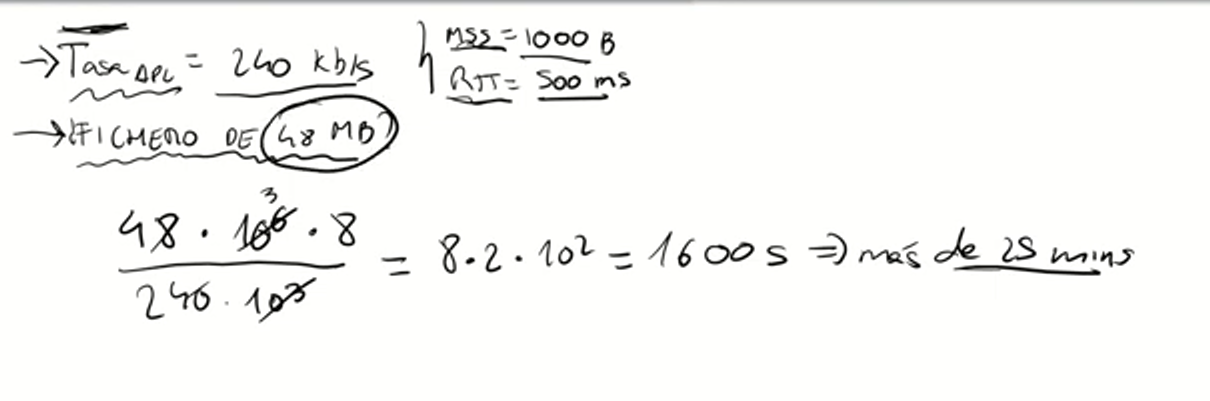 → Tasa APL = 240 kb/s
MSS = 1000 B
RTT = 500 ms
→ FICHERO DE 48 MB
48 · 10⁶ · 8 / 240 · 10³ = 8 · 2 · 10² = 1600 s ⇒ más de 25 mins
3